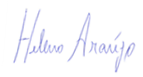 Heleno Araújo